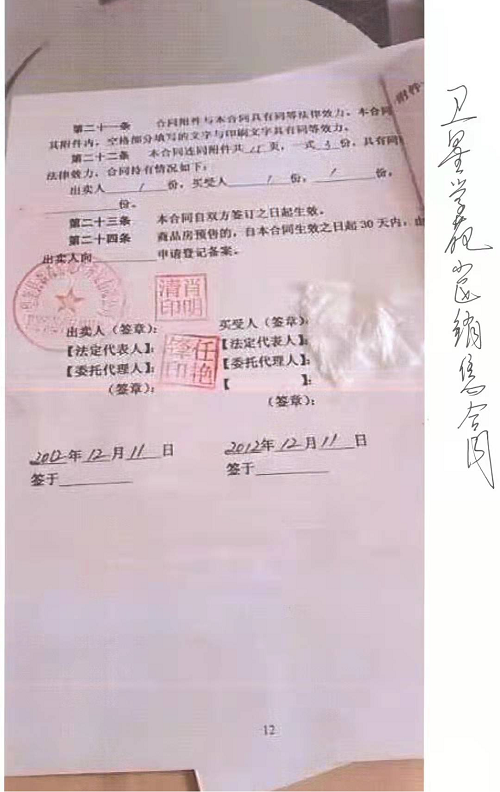 第二十一条 合同附件与本合同具有同等法律效力。本合同
其附件内，空格部分填写的文字与印刷文字具有同等效力。
第二十二条 本合同连同附件共 15 页，一式 3 份，具有同
法律效力，合同持有情况如下：
出卖人 1 份，买受人 1 份， 1 份，
份。
第二十三条 本合同自双方签订之日起生效。
第二十四条 商品房预售的，自本合同生效之日起30天内，由
出卖人向 申请登记备案。
出卖人（签章）：
【法定代表人】：
【委托代理人】：
（签章）：
肖明清印
任艳锋印
买受人（签章）：
【法定代表人】：
【委托代理人】：
【 】：
（签章）：
2012年12月11日
签于
2012年12月11日
签于
12
附件
卫星学苑小区销售合同